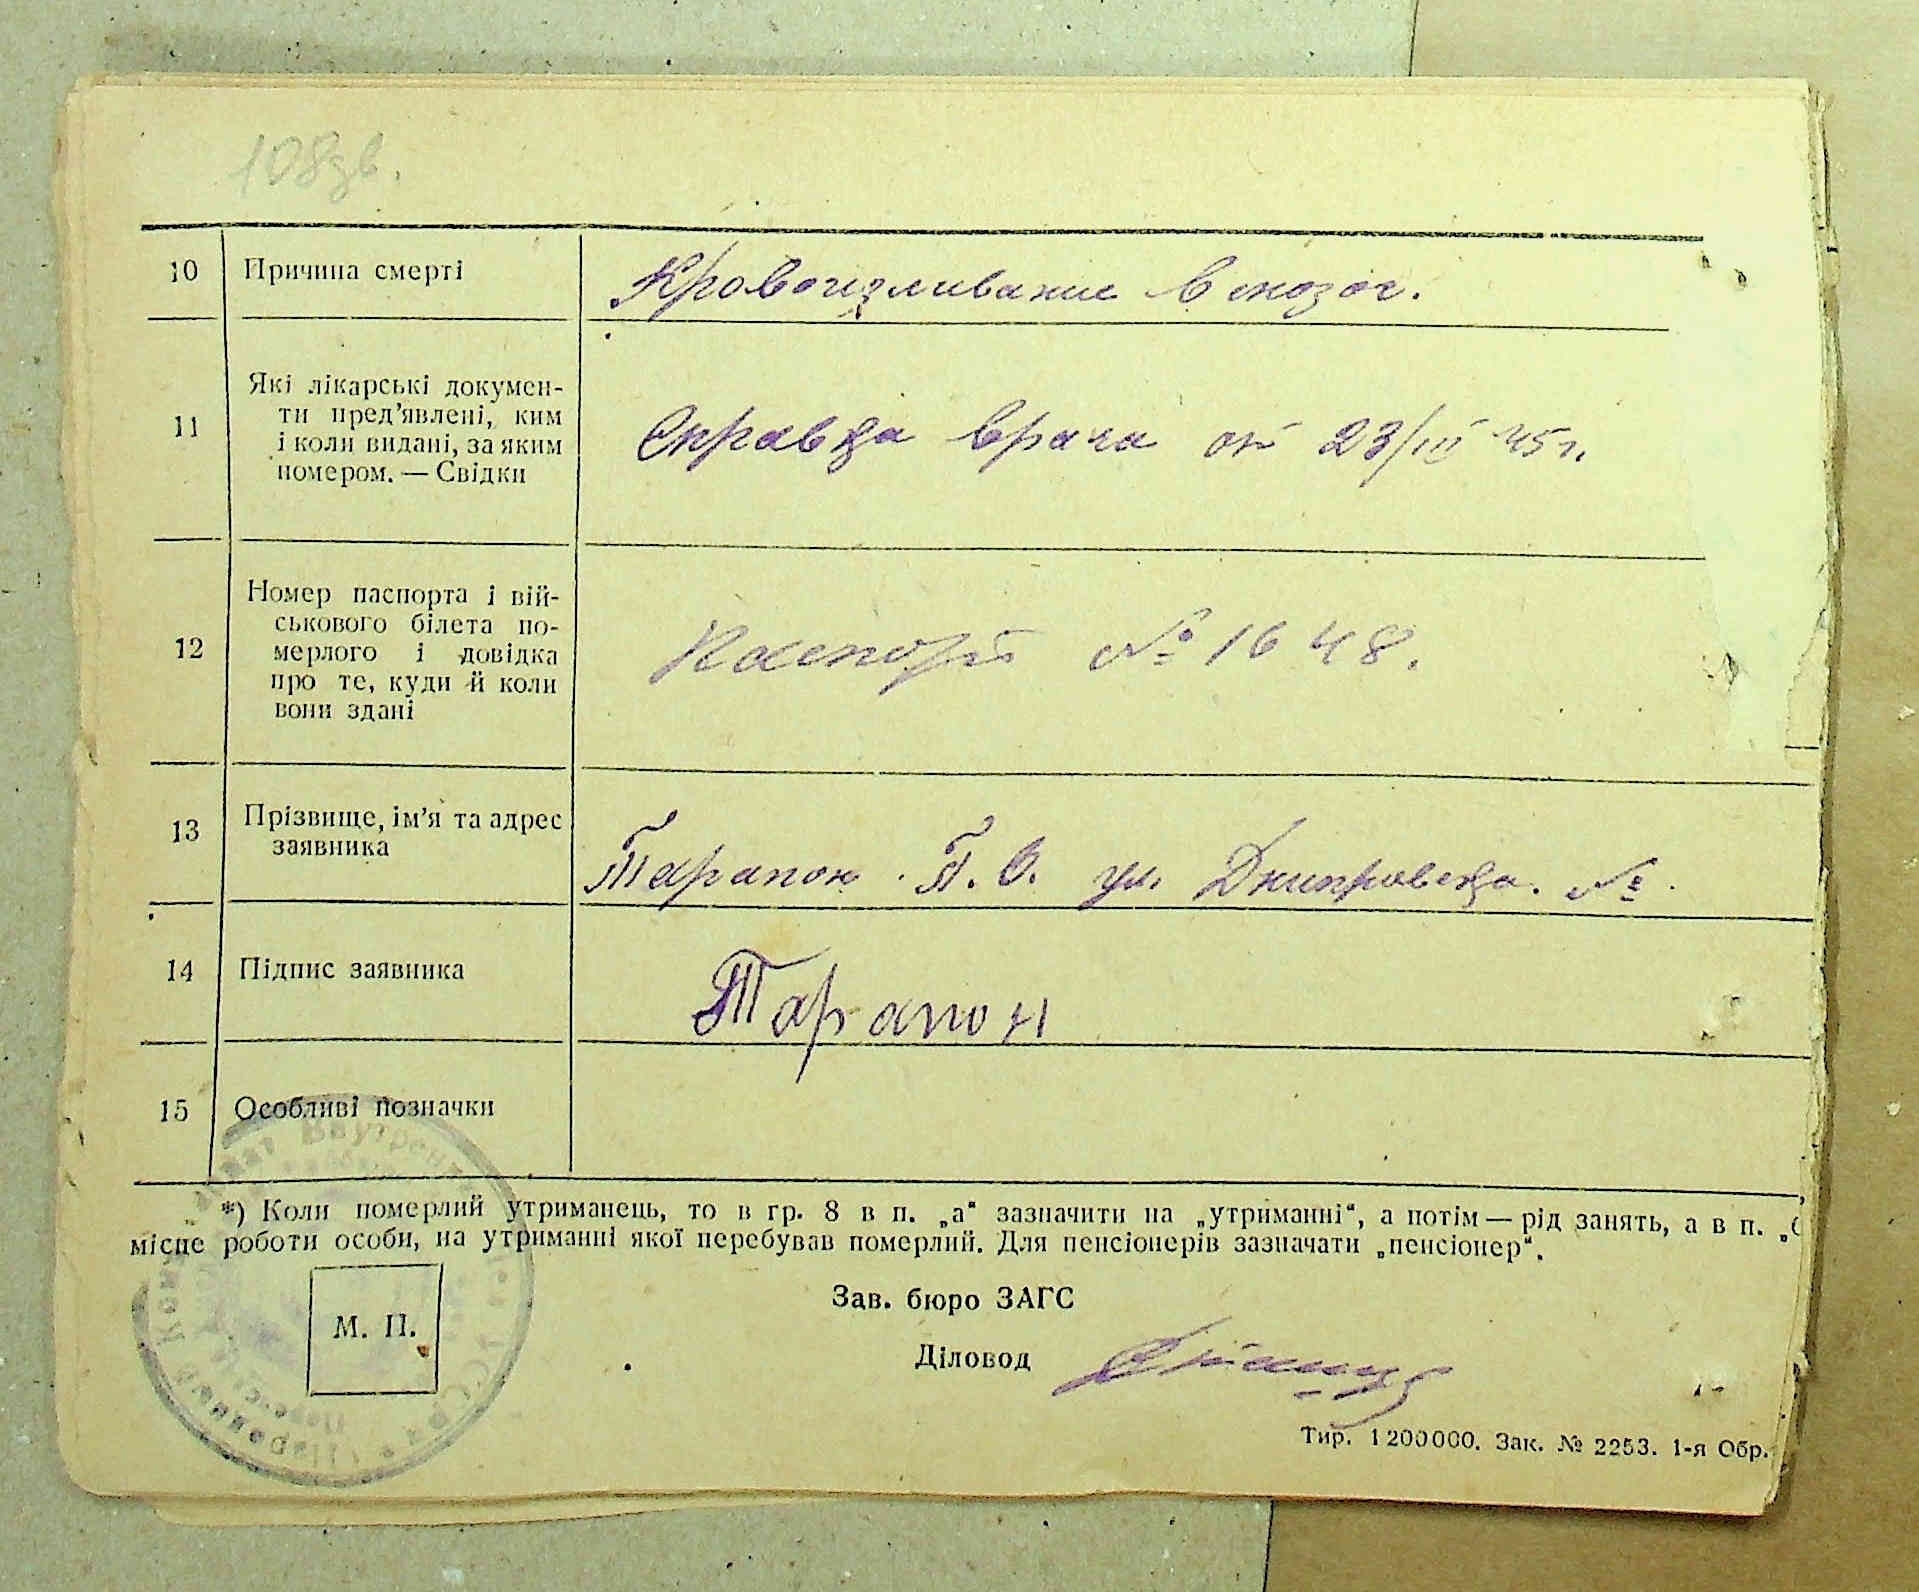 108зв.
10 Причина смерті Кровоизливание в мозог.
11 Які лікарські докумен-
ти пред’явлені, ким
і коли видані, за яким
номером. — Свідки
Справка врача от 23/III 45 г.
12 Номер паспорта і вій-
ськового білета по-
мерлого і довідка
про те, куди й коли
вони здані
Паспорт № 1648.
13 Прізвище, ім’я та адрес
заявника
Тарапон П. О. ул. Днипровска. №
14 Підпис заявника Тарапон
15 Особливі позначки
*) Коли померлий утриманець, то в гр. 8 в п. „а“ зазначити на „утриманні“, а потім — рід занять, а в п. „
місце роботи особи, на утриманні якої перебував померлий. Для пенсіонерів зазначати „пенсіонер“.
Зав. бюро ЗАГС
М. П.
Діловод
Тир. 1200000. Зак. № 2253. 1-я Обр.